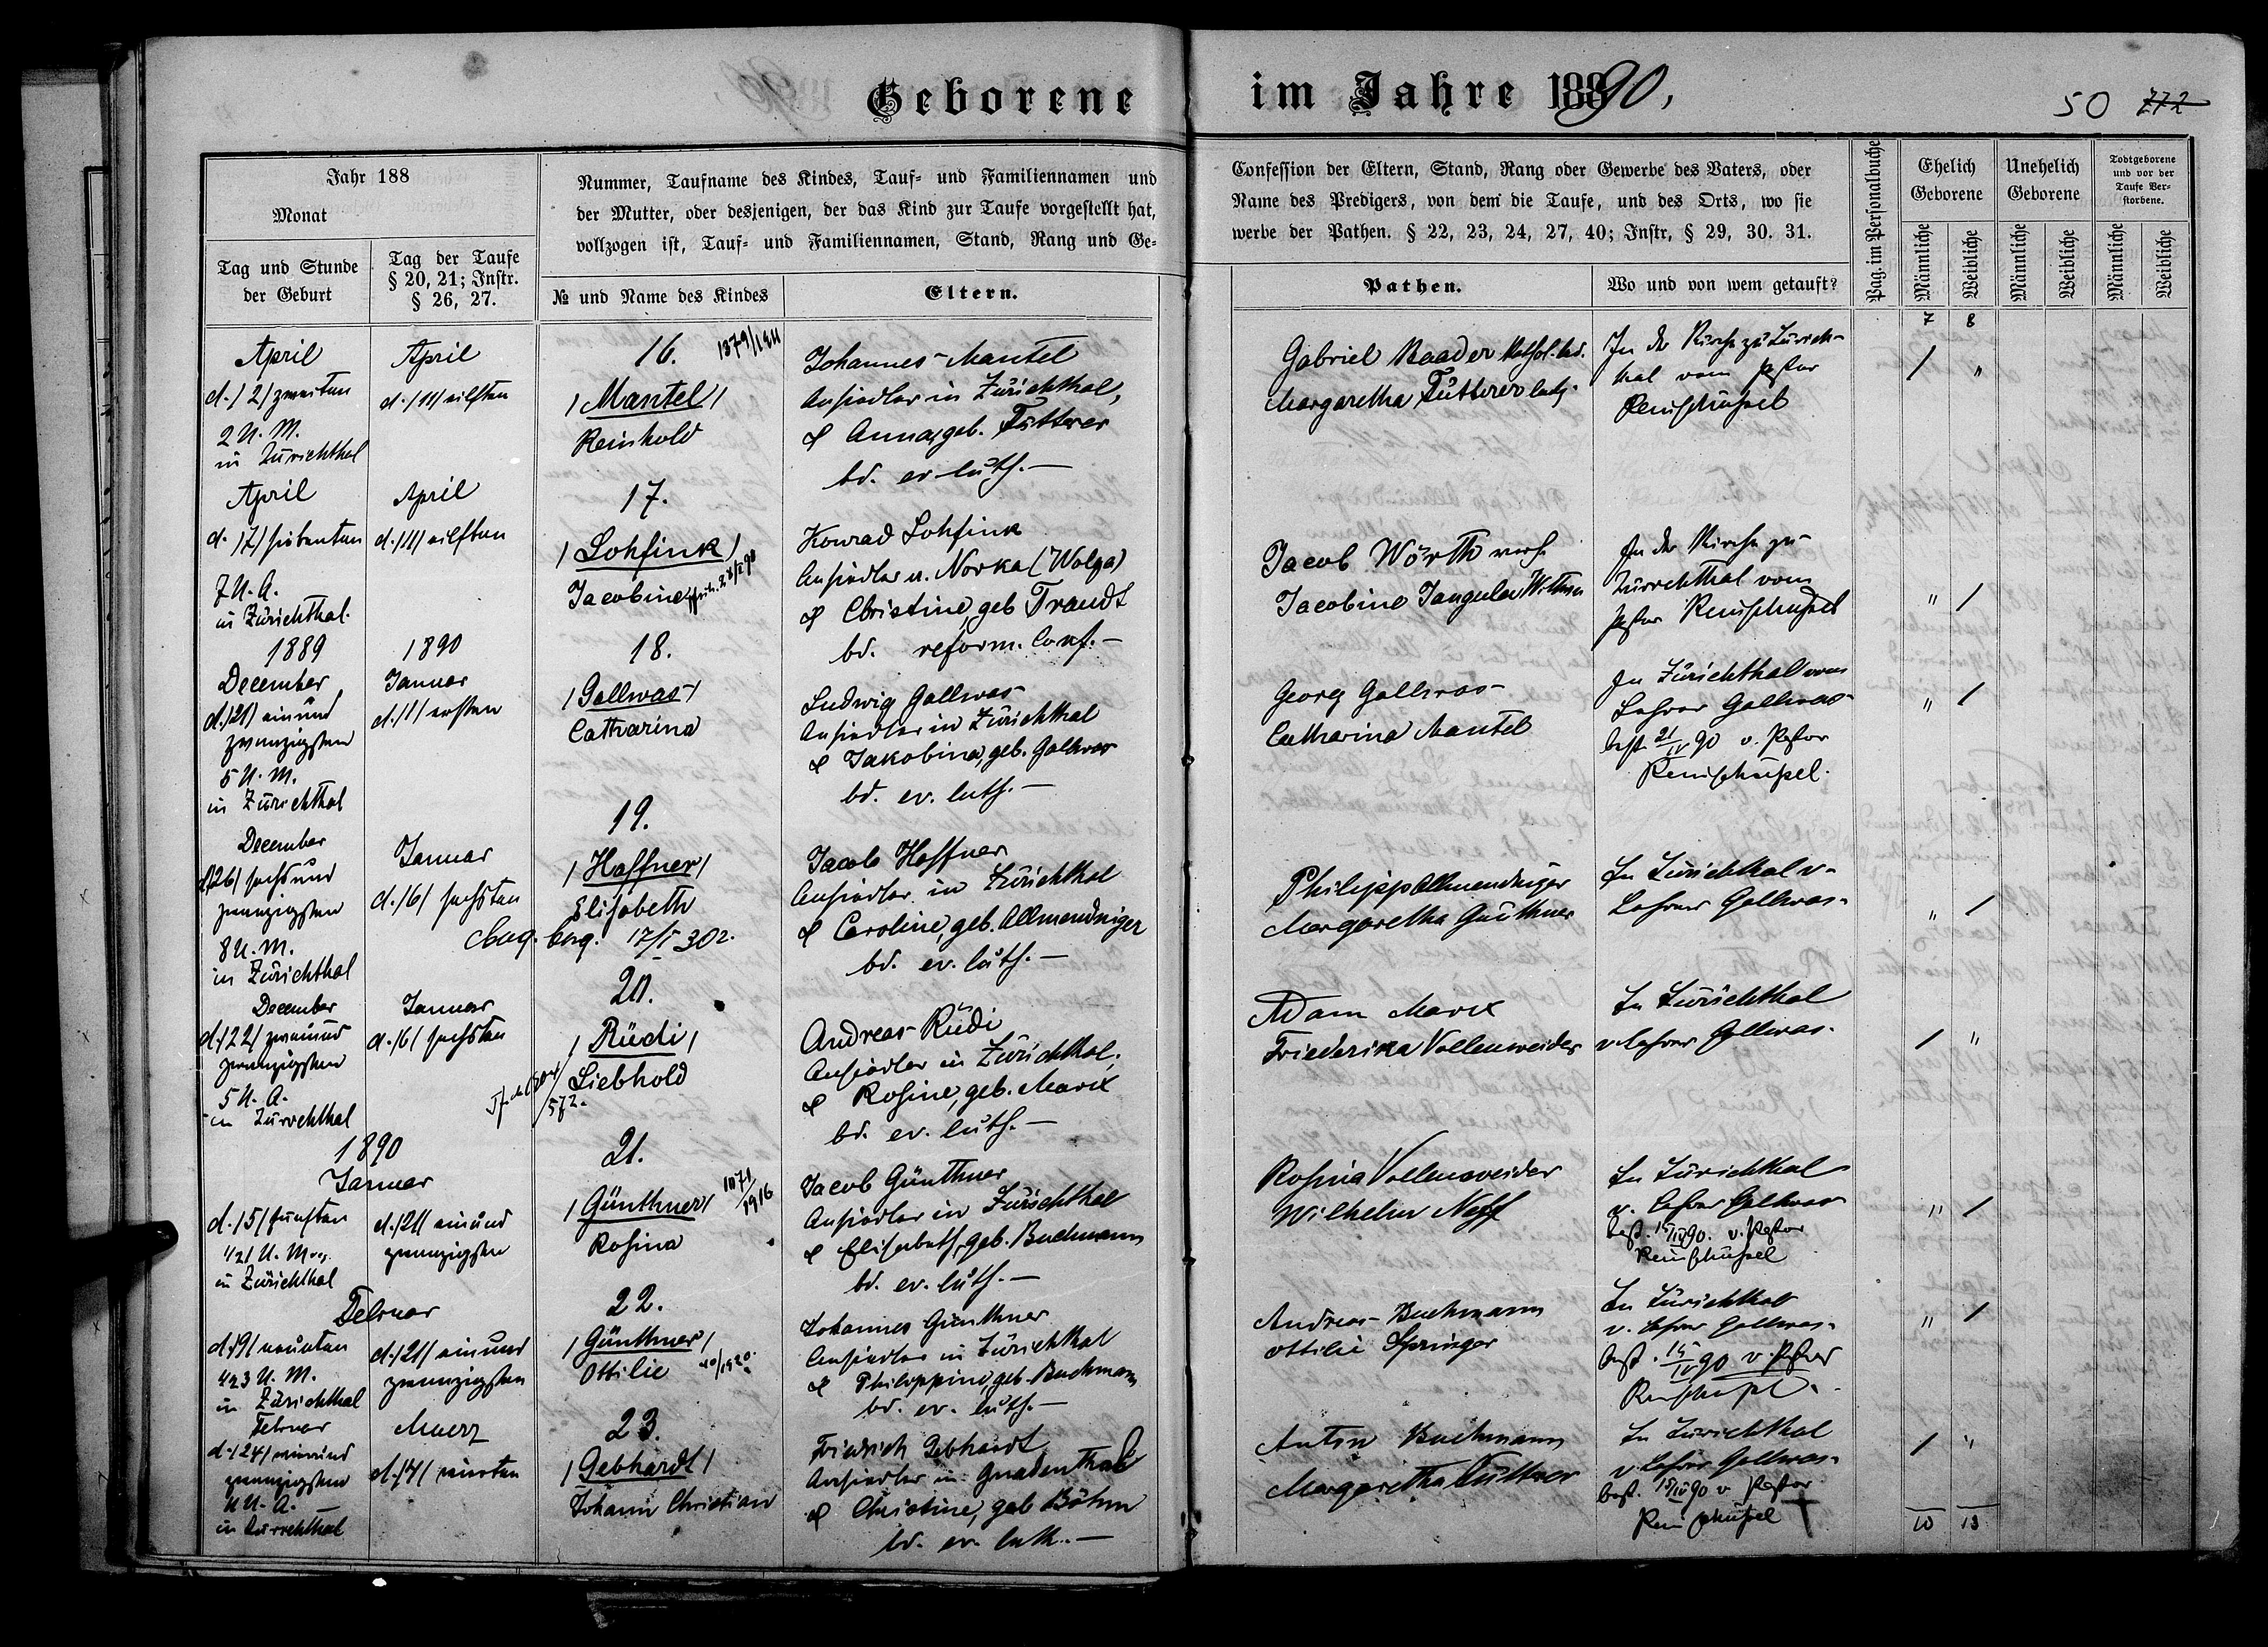 Geborene im Jahre 1890,
50 772
Jahr 188
Monat
Tag und Stunde
der Geburt
Tag der Taufe
§ 20, 21; Instr.
§ 26, 27.
Nummer, Taufname des Kindes, Tauf- und Familiennamen und
der Mutter, oder desjenigen, der das Kind zur Taufe vorgestellt hat,
vollzogen ist, Tauf- und Familiennamen, Stand, Rang und Ge-
№ und Name des Kindes
Eltern.
Confession der Eltern, Stand, Rang oder Gewerbe des Vaters, oder
Name des Predigers, von dem die Taufe, und des Orts, wo sie
werbe der Pathen. § 22, 23, 24, 27, 40; Instr, § 29, 30. 31.
Pathen.
Wo und von wem getauft?
Pag. im Personalbuche
Ehelich
Geborene
Unehelich
Geborene
Todtgeborene
und vor der
Taufe Ver-
storbene.
Männliche
Weibliche
Männliche
Weibliche
Männliche
Weibliche
7 8
April
d. /2/ zweiten
2 U. M.
in Zürichthal
April
d. /11/ eilften
16.
/Mantel/
Reinhold
Johannes Mantel
Ansiedler in Zürichthal,
& Anna, geb. Fütterer
bd. ev. luth. —
Gabriel Raader Kathol. led.
Margaretha Fütterer led.
In der Kirche zu Zürich-
thal vom Pastor
/ "
April
d. /7/ siebenten
7 U. A.
in Zürichthal.
April
d. /11/ eilften
17.
/Lohfink/
Jacobine
Konrad Lohfink
Ansiedler u. Norka (Wolga)
& Christine, geb Traudt
bd. reform. Conf. —
Jacob Wörth
Jacobine
In der Kirche zu
Zürichthal vom
Pastor
" /
1889
December
d. /21/ einund
zwanzigsten
5 U. M.
in Zürichthal
1890
Januar
d. /1/ ersten
18.
/Gallwas/
Catharina
Ludwig Gallwas
Ansiedler in Zürichthal
& Jakobina, geb. Gallwas
bd. ev. luth. —
Georg Gallwas
Catharina Mantel
In Zürichthal vom
Lehrer Gallwas
best. 21/IV 90 v. Pastor
" /
December
d. /26/ sechsund
zwanzigsten
8 U. M.
in Zürichthal
Januar
d. /6/ sechsten
19.
/Haffner/
Elisabeth
17/I 30 г.
Jacob Haffner
Ansiedler in Zürichthal
& Caroline, geb. Allmendinger
bd. ev. luth. —
Philipp Allmendinger
Margaretha Günthner
In Zürichthal v.
Lehrer Gallwas.
" /
December
d. /22/ zweiund
zwanzigsten
5 U. A.
in Zürichthal
Januar
d. /6/ sechsten
20.
/Rüdi/
Liebhold
572.
Andreas Rüdi
Ansiedler in Zürichthal,
& Rosine, geb. Marx
bd. ev. luth. —
Adam Marx
Friederika Vollenweider
In Zürichthal
v. Lehrer Gallwas.
/ "
1890
Januar
d. /5/ fünften
in Zürichthal
d. /21/ einund
zwanzigsten
21.
/Günthner/
1071/1916
Rosina
Jacob Günthner
Ansiedler in Zürichthal
& Elisabeth, geb. Buchmann
bd. ev. luth. —
Rosina Vollenweider
Wilhelm Neff
In Zürichthal
v. Lehrer Gallwas
best. 15/IV 90. v. Pastor
" /
Februar
d. /9/ neunten
in Zürichthal
d. /21/ einund
zwanzigsten
22.
/Günthner/
Ottilie
Johannes Günthner
Ansiedler in Zürichthal
& Philippine, geb. Buchmann
bd. ev. luth. —
Andreas Buchmann
Ottilie Springer
In Zürichthal
v. Lehrer Gallwas.
best. 15/IV 90 v. Pastor
" /
Februar
zwanzigsten
in Zürichthal
Maerz
d. /4/ vierten
23.
/Gebhardt/
Johann Christian
Friedrich Gebhardt
Ansiedler in Gnadenthal
& Christine, geb Böhm
bd. ev. luth. —
Anton Buchmann
Margaretha Fütterer
In Zürichthal
v. Lehrer Gallwas.
best. 15/IV 90 v. Pastor
/ "
10 13